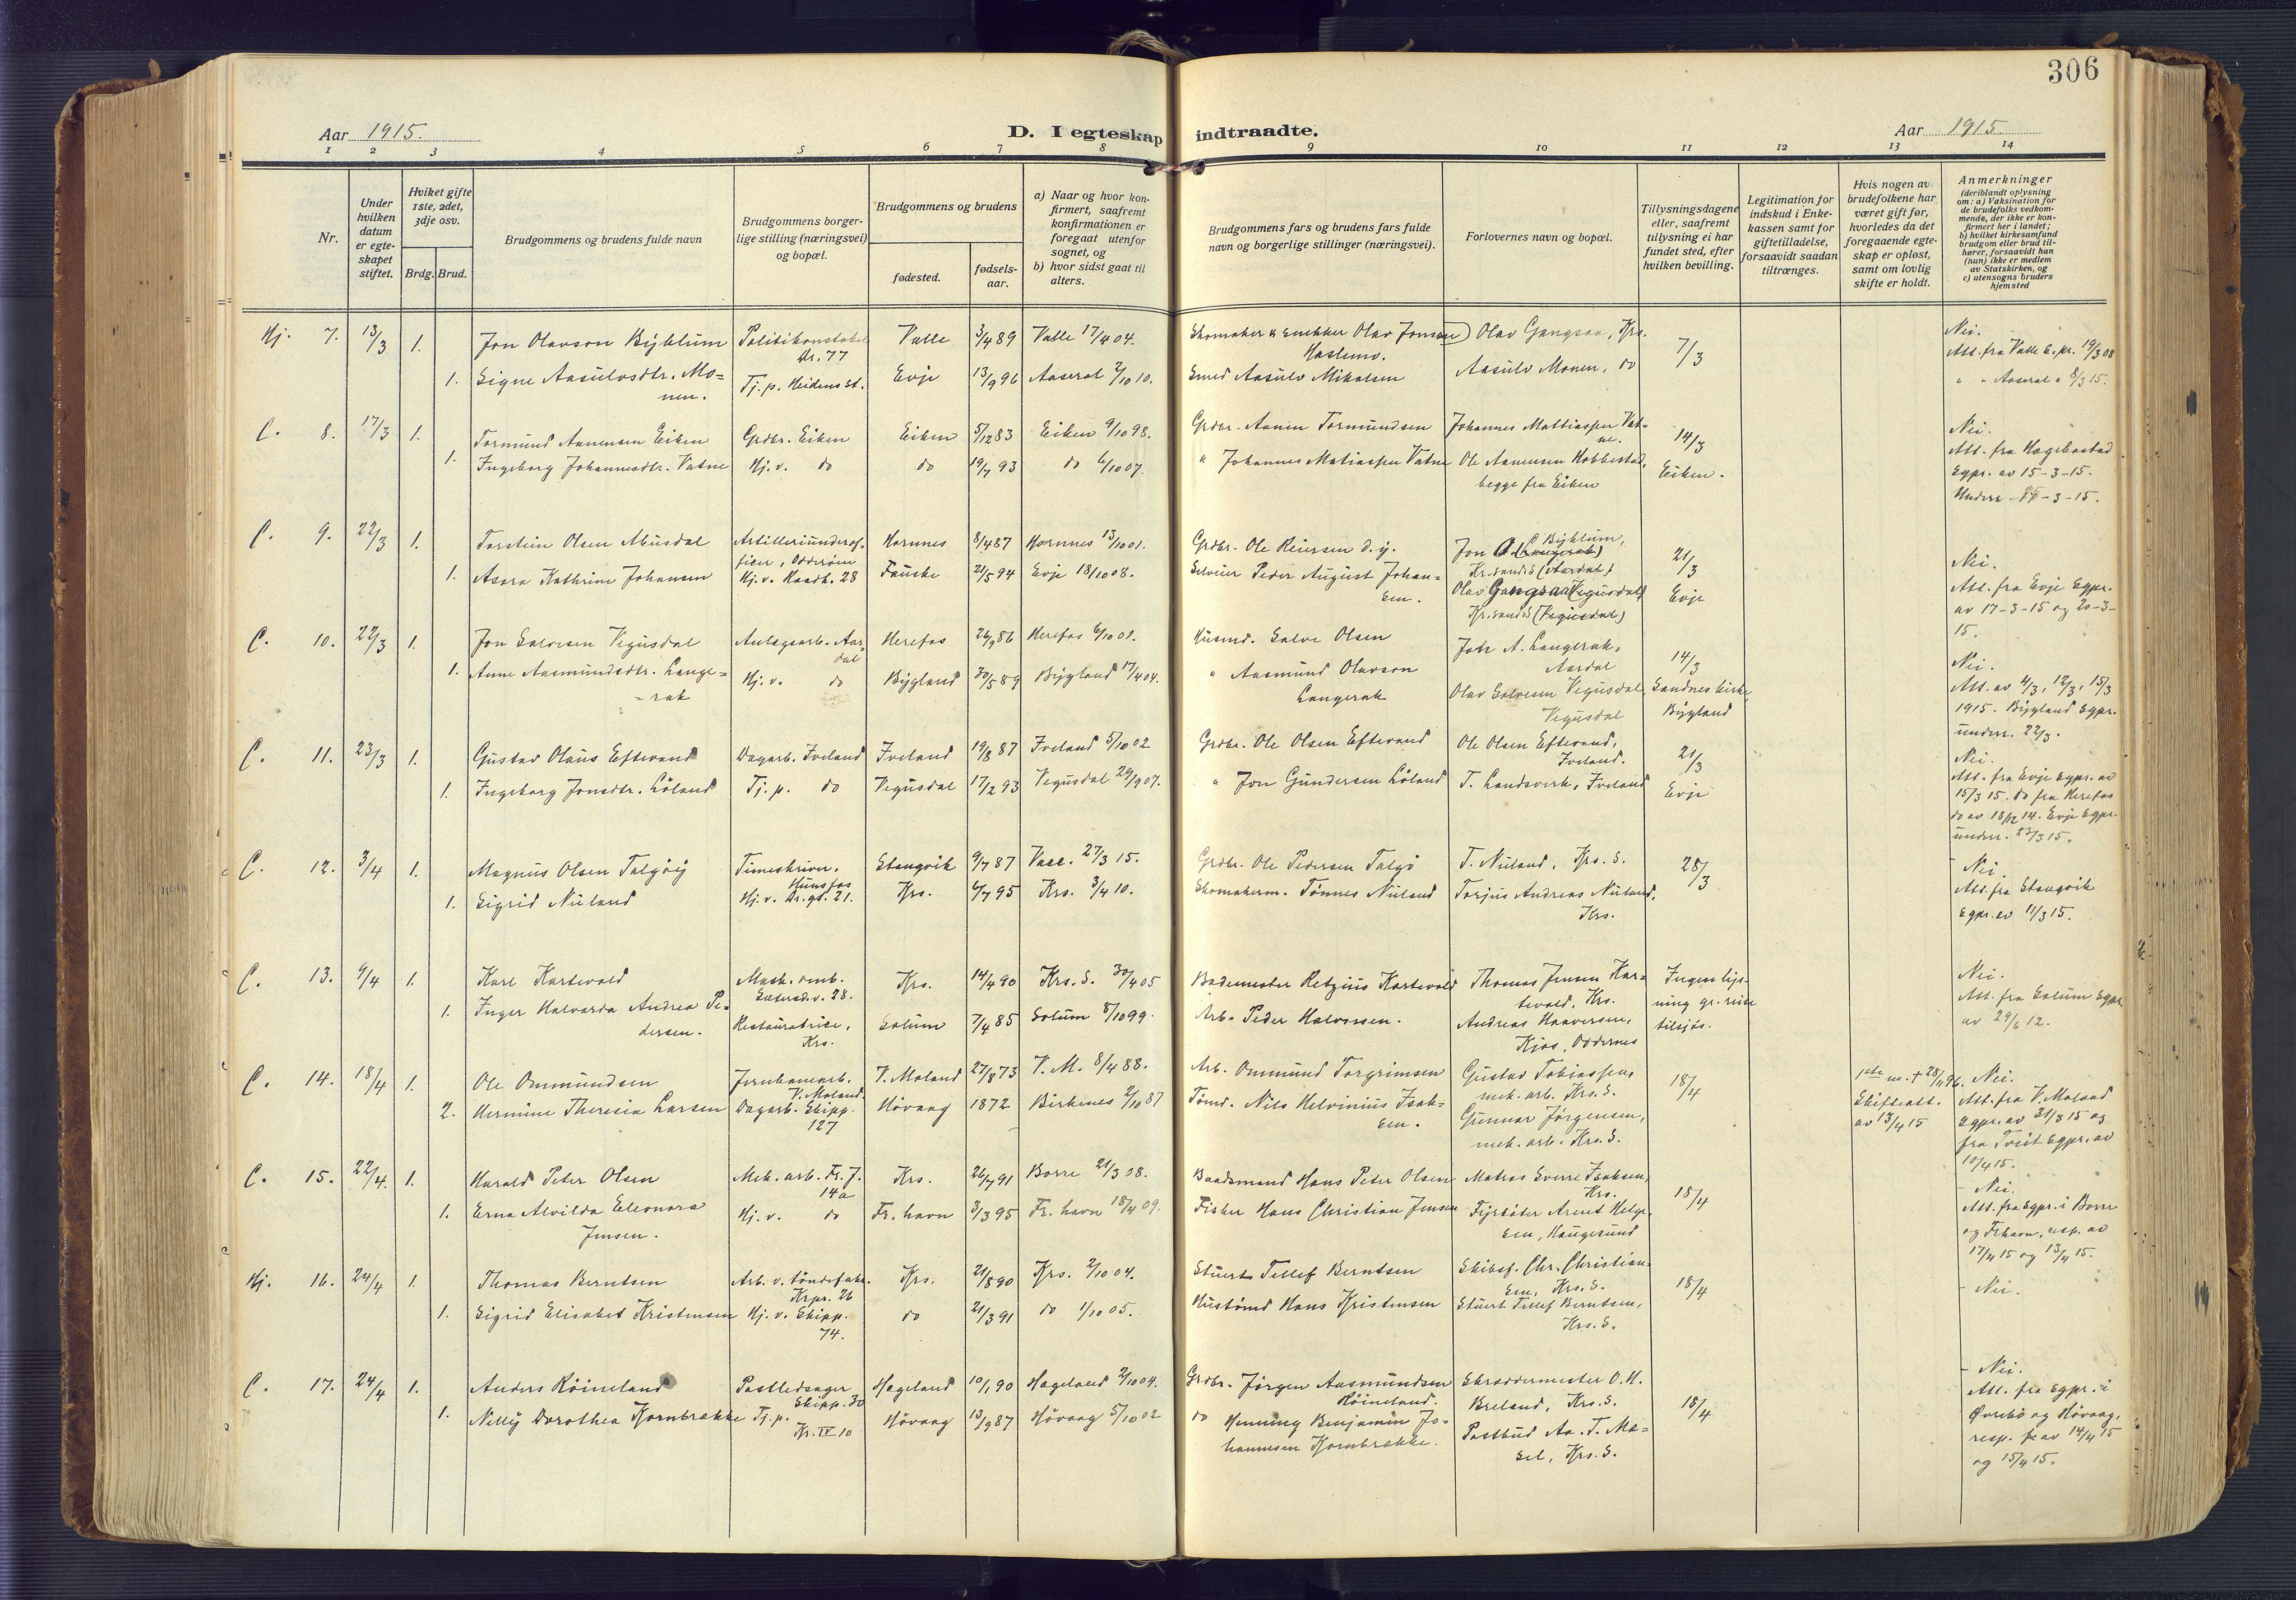 306
Aar 1915.
D. I egteskap indtraadte.
Aar 1915
1 2 3 4 5 6 7 8 9 10 11 12 13 14
Nr.
Under
hvilken
datum
er egte-
skapet
stiftet.
Hvilket gifte
1ste, 2det,
3dje osv.
Brdg. Brud.
Brudgommens og brudens fulde navn
Brudgommens borger-
lige stilling (næringsvei)
og bopæl.
Brudgommens og brudens
fødested.
fødsels-
aar.
a) Naar og hvor kon-
firmert, saafremt
konfirmationen er
foregaat utenfor
sognet, og
b) hvor sidst gaat til
alters.
Brudgommens fars og brudens fars fulde
navn og borgerlige stillinger (næringsvei).
Forlovernes navn og bopæl.
Tillysningsdagene
eller, saafremt
tillysning ei har
fundet sted, efter
hvilken bevilling.
Legitimation for
indskud i Enke-
kassen samt for
giftetilladelse,
forsaavidt saadan
tiltrænges.
Hvis nogen av
brudefolkene har
været gift før,
hvorledes da det
foregaaende egte-
skap er opløst,
samt om lovlig
skifte er holdt.
Anmerkninger
(deriblandt oplysning
om: a) Vaksination for
de brudefolks vedkom-
mende, der ikke er kon-
firmert her i landet;
b) hvilket kirkesamfund
brudgom eller brud til-
hører, forsaavidt han
(hun) ikke er medlem
av Statskirken, og
c) utensogns bruders
hjemsted
Hj. 7. 13/3 1. Jon Olavson Byklum Politikonstabel Valle 3/4 89 Valle 17/4 04. Olav Gangsaa, Krs. 7/3 Nei.
Nr. 77 Att. fra Valle 19/3 08
1. Signe Aasulvsdtr. Mo- Tj. p. Heidenst. Evje 13/9 96 Aaseral 2/10 10. Smed Aasulv Mikalsen Aasulv Monen, do " " Aaseral " 8/3 15.
nen.
C. 8. 17/3 1. Tormund Aanensen Eiken Grdbr. Eiken Eiken 5/12 83 Eiken 9/10 98. Grdbr. Aanen Tormundsen Johannes Mattiassen Vat- 14/3 Nei.
ne. Att. fra Hægebostad
1. Ingeborg Johannesdtr. Vatne Hj. v. do do 19/7 93 do 6/10 07. " Johannes Matiassen Vatne Ole Aanensen Hobbestad, Eiken. Sgpr. av 15-3-15.
begge fra Eiken
C. 9. 22/3 1. Torstein Olsen Abusdal Artilleriunderof- Hornnes 8/4 87 Hornnes 13/10 01. Grdbr. Ole Reiersen d. y. Jon Byklum, 21/3 Nei.
ficer, Odderøen Kr.sand S
1. Asora Kathrine Johansen Hj. v. Raadh. 28 Fauske 21/5 94 Evje 18/10 08. Peder August Johan- Olav Gangsaa Evje Att. fra Evje Sgpr.
sen. Kr.sand S (Vegusdal) av 17-3-15 og 20-3-
15.
C. 10. 22/3 1. Jon Salvesen Vegusdal Anlægsarb. Aar- Herefos 26/9 86 Herefos 6/10 01. Husmd. Salve Olsen A. Langerak, 14/3 Nei.
dal Aardal
1. Anne Aasmundsdtr. Lange- Hj. v. do Bygland 30/5 89 Bygland 17/4 04. " Aasmund Olavson Olav Salvesen Vegusdal, Sandnes kirke, Att. av 4/3, 12/3, 15/3
-rak Langerak Vegusdal Bygland 1915. Bygland Sgpr.
underr. 22/3.
C. 11. 23/3 1. Gustav Olaus Eftevand Dagarb. Iveland Iveland 19/8 87 Iveland 5/10 02 Grdbr. Ole Olsen Eftevand Ole Olsen Eftevand, 21/3 Nei.
Iveland. Att. fra Evje Sgpr. av
1. Ingeborg Jonsdtr. Løland Tj. p. do Vegusdal 17/2 93 Vegusdal 29/9 07. " Jon Gundersen Løland T. Landsverk, Iveland Evje 15/3 15. do fra Herefos
do av 18/12 14. Evje Sgpr.
underr. 23/3 15.
C. 12. 3/4 1. Magnus Olsen Talgøy Timeskriver, Stangvik 9/7 87 Vacc. 27/3 15. Grdbr. Ole Pedersen Talgø T. Nuland, Krs. S. 28/3 Nei.
Hunsfos Att. fra Stangvik
1. Sigrid Nuland Hj. v. Dr. gt. 21. Krs. 4/7 95 Krs. 3/4 10. Skomakerm. Tønnes Nuland Torjus Andreas Nuland, Sgpr. av 11/3 15.
Krs.
C. 13. 9/4 1. Karl Kartevold Mask. omb. Krs. 14/4 90 Krs. S. 30/4 05 Bademester Retzius Kartevold Thomas Jensen Kar- Ingen lys- Nei.
tevold, Krs. ning gr. reise Att. fra Solum Sgpr.
1. Inger Halvarda Andrea Pe- Restauratrice, Solum 7/4 85 Solum 8/10 99. Arb. Peder Halvorsen. Andreas Haaversen, tilsjøs. av 29/6 12.
dersen. Krs. Kjos, Oddernes
C. 14. 18/4 1. Ole Ommundsen Jernbanearb. V. Moland 27/8 73 V. M. 8/4 88. Arb. Ommund Torgrimsen Gustav Tobiassen, 18/4 1ste m. † 28/11 96. Nei.
V. Moland mek. arb. Krs. S. Skifteatt. Att. fra V. Moland
2. Hermine Theresia Larsen Dagarb. Skipp. Høvaag 1872 Birkenes 2/10 87 Tømd. Nils Helvinius Isak- Gunnar Jørgensen, av 13/4 15 Sgpr. av 31/3 15 og
127 sen. mek. arb. Krs. S. fra Tveit Sgpr. av
10/4 15.
C. 15. 22/4. 1. Harald Peter Olsen Mek. arb. Fr. J. Krs. 26/7 91 Borre 21/3 08. Baadsmand Hans Peter Olsen Matros Sverre Isaksen, 18/4 Nei.
14a Krs.
1. Erna Alvilda Eleonora Hj. v. do Fr. havn 3/3 95 Fr. havn 18/4 09. Fisker Hans Christian Jensen Fyrbøter Arent Helge- Att. fra Sgpr. i Borre
Jensen. sen, Haugesund og Frhavn, resp. av
17/4 15 og 13/4 15.
Hj. 16. 24/4 1. Thomas Berntsen Arb. v. tøndefabr. Krs. 21/8 90 Krs. 2/10 04. Stuert Tellef Berntsen Skibsf. Chr. Christian- 18/4 Nei.
Krpr. 26 sen, Krs. S.
1. Sigrid Elisabet Kristensen Hj. v. Skipp. do 21/3 91 do 1/10 05. Hans Kristensen Stuert Tellef Berntsen,
74. Krs. S.
C. 17. 24/4 1. Anders Røineland Postledsager Hægeland 10/1 90 Hægeland 2/10 04. Grdbr. Jørgen Aasmundsen Skræddermester O. H. 18/4 Nei.
Skipp. 30 Røineland. Breland, Krs. S. Att. fra Sgpr. i
1. Nelly Dorothea Kornbrække Tj. p. Høvaag 13/9 87 Høvaag 5/10 02 do Henning Benjamin Jo- Postbud Aa. T. Mo- Øvrebø og Høvaag,
Kr. IV 10 hannesen Kornbrække. sel, Krs. S. resp. av 14/4 15
og 15/4 15.